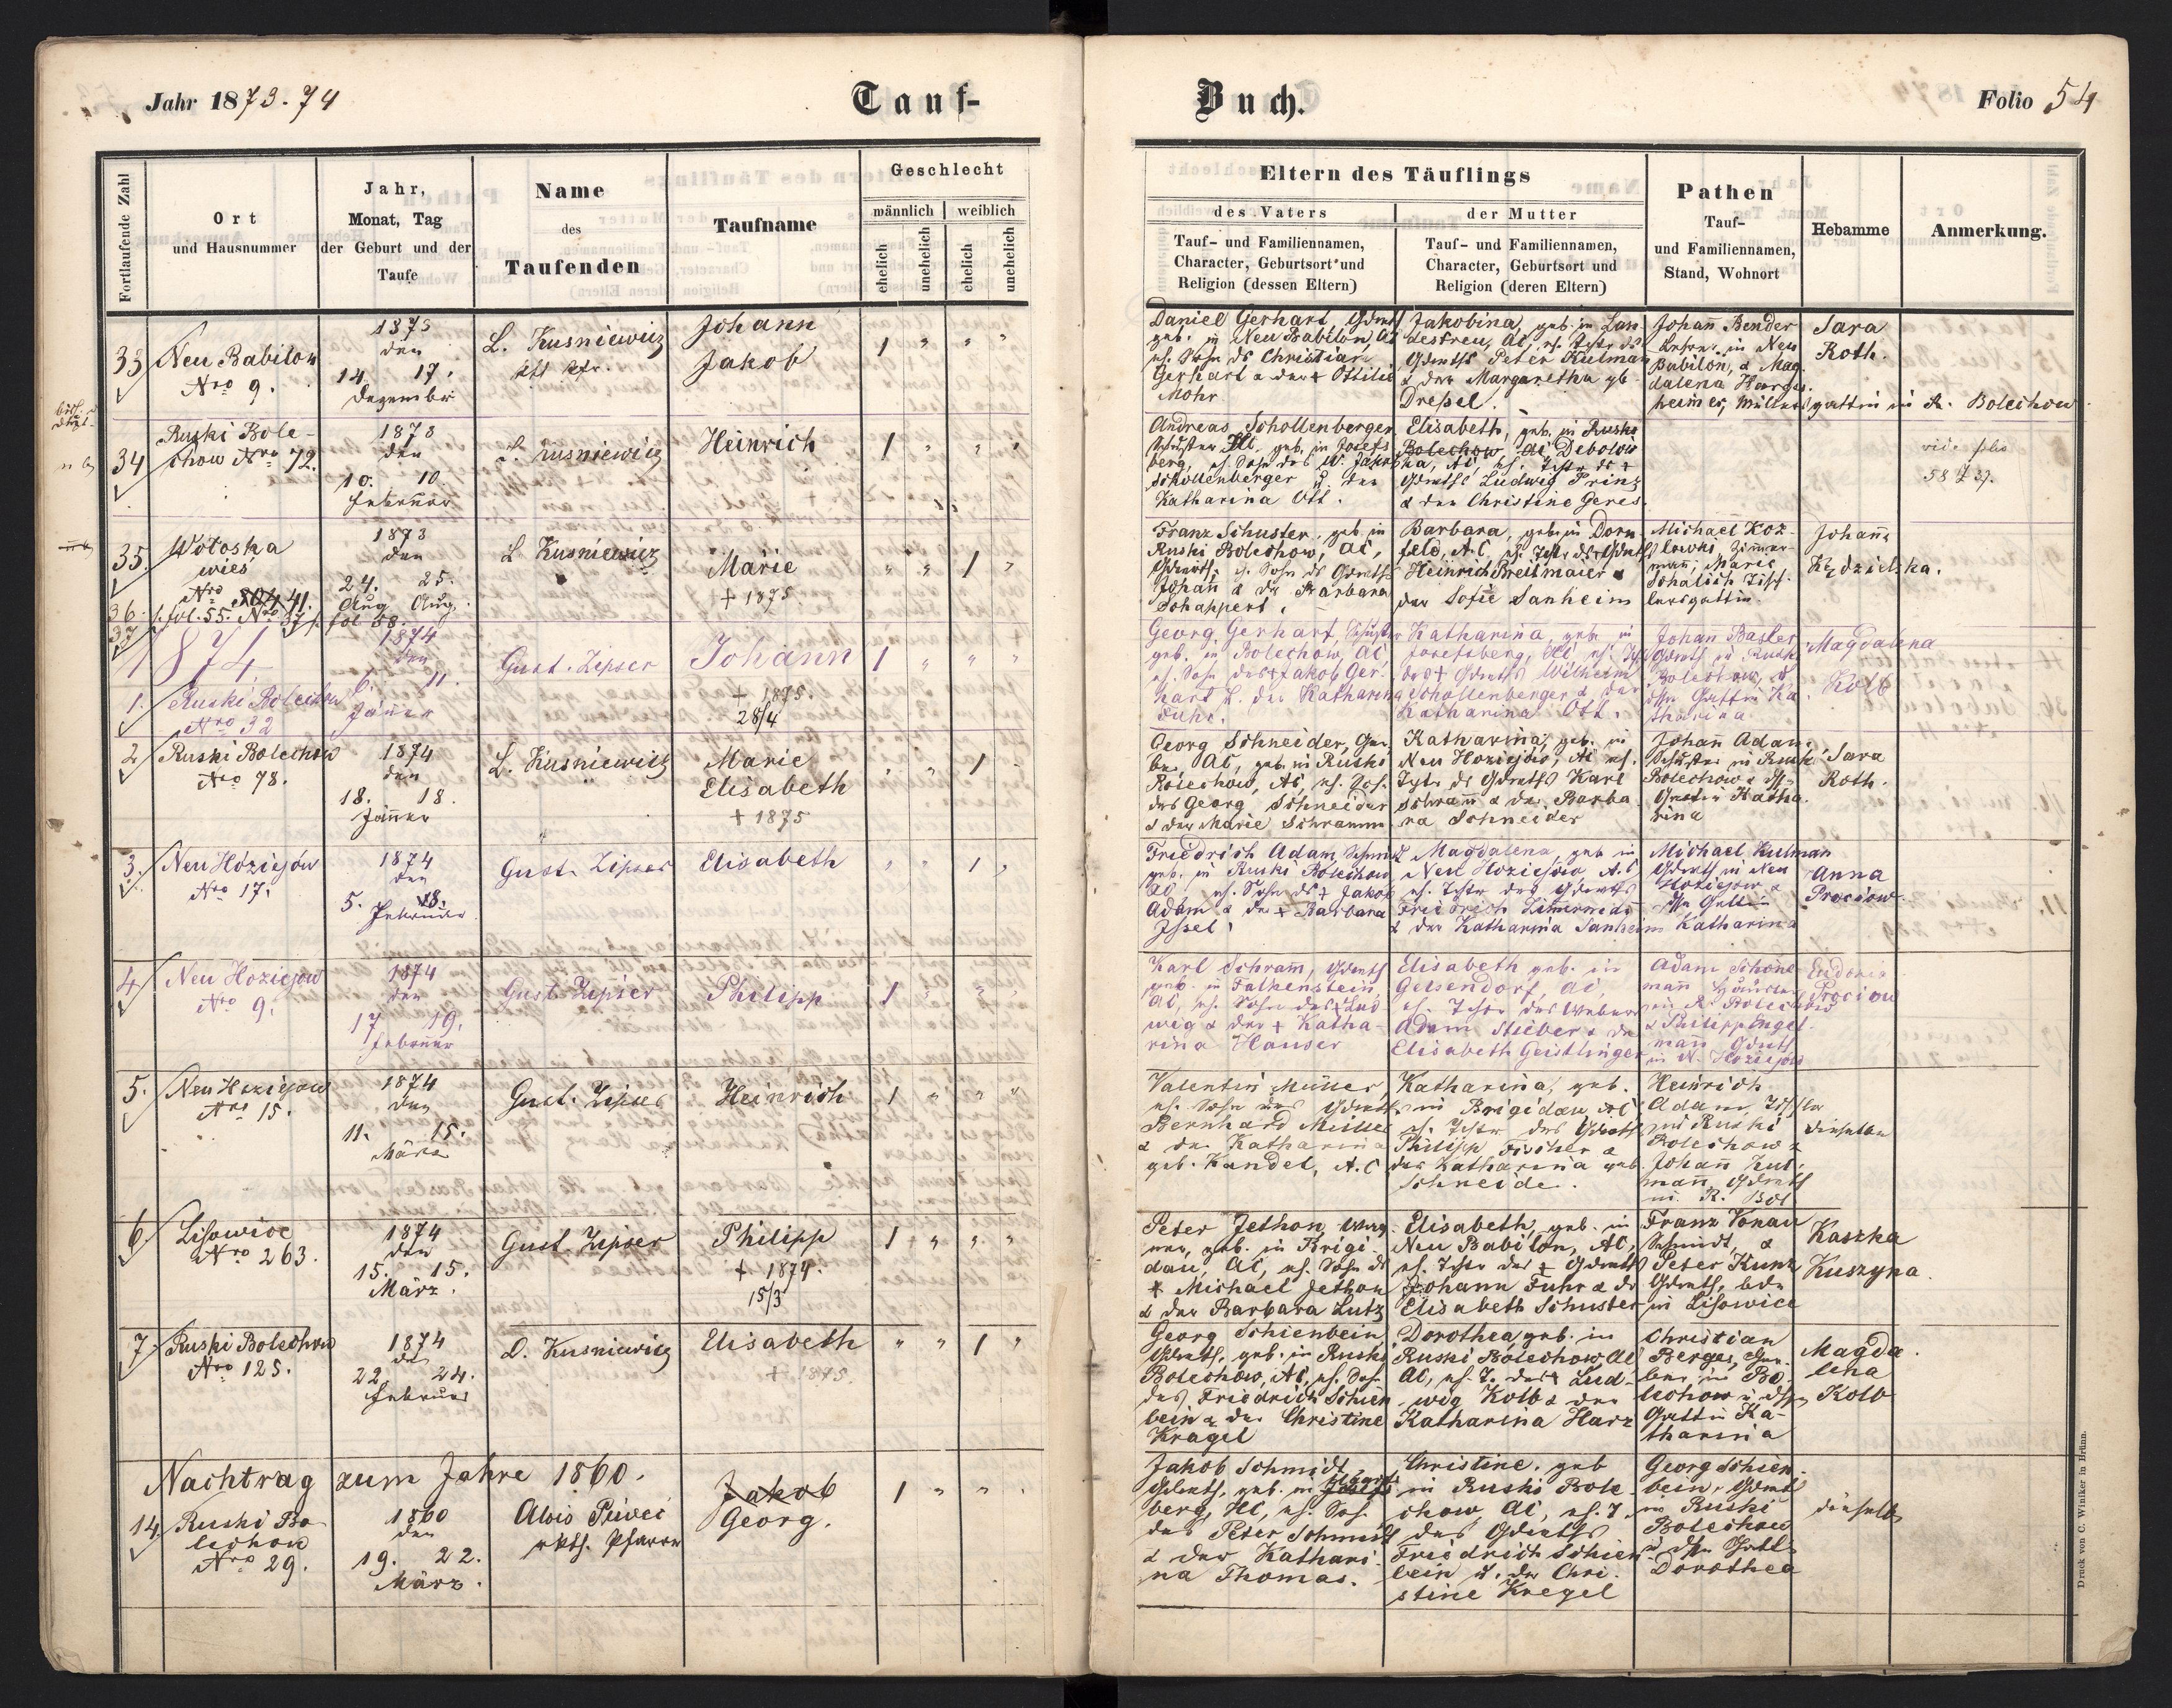 Jahr 1873.74
Tauf-
Buch.
Folio 54
Fortlaufende Zahl
Ort
und Hausnummer
Jahr,
Monat, Tag
der Geburt und der
Taufe
Name
des
Taufenden
Taufname
Geschlecht
männlich
weiblich
ehelich
unehelich
ehelich
unehelich
Eltern des Täuflings
des Vaters
der Mutter
Tauf- und Familiennamen,
Character, Geburtsort und
Religion (dessen Eltern)
Tauf- und Familiennamen,
Character, Geburtsort und
Religion (deren Eltern)
Pathen
Tauf-
und Familiennamen,
Stand, Wohnort
Hebamme
Anmerkung.
33
Neu Babilon
Nro 9.
1873
den
14. 17.
Dezember
L. Kusniewicz
Johann
Jakob
1 " " "
Daniel Gerhart,
geb. in Neu Babilon, AC
eh. Sohn ds Christian
Gerhart & der + Ottilie
Mohr
Jakobina, geb. in Lan-
destreu, AC, eh. Tchtr ds
Peter Kulman
& der Margaretha gb
Dreßel.
Johann Bender
Lehrer in Neu
Babilon, & Mag-
dalena
heimer, Müllersgattin in R. Bolechow
Sara
Roth.
34
Ruski Bole-
chow Nro 72.
1873
den
10. 10
Februar
L. Kusniewicz
Heinrich
1 " " "
Andreas Schollenberger
Schuster HC, geb. in Josefs
berg, eh. Sohn des W. Jakob
Schollenberger u. der
Katharina Ott.
Elisabeth, geb. in Ruski
Bolechow, AC Debolow
ka, AC, eh. Tchtr ds +
Ludwig Prinz
& der Christine Geres.
vide folio
58 Z 37.
35.
Wotoska
wies
Nro 41.
1873
den
24. 25.
Aug. Aug.
L. Kusniewicz
Marie
+ 1875
" " 1 "
Franz Schuster, geb in
Ruski Bolechow, AC,
eh. Sohn ds
Johann & der Barbara
Schappert.
Barbara, geb. in Dorn
feld, A.C. eh. Tchtr ds
Heinrich Breitmaier &
der Sofie Sanheim
Michael Koz-
lowski, Zimmer-
mann, Marie
Schalich Tisch-
lersgattin.
Johanna
Kędzielska.
36. s. fol. 55. Nro 37 s. fol 58.
37
1874
1.
Ruski Bolechow
Nro 32
1874
den
6. 11.
Jänner
Gust. Zipser
Johann
+ 1875.
28/4
1 " " "
Georg Gerhart, Schuster
geb. in Bolechow, AC
eh. Sohn des + Jakob Ger-
hart u. der Katharina
Fuhr.
Katharina, geb. in
Josefsberg, HC eh.
des + Wilhelm
Schollenberger & der
Katharina Ott.
Johann Basler
in Ruski
Bolechow, &
Gattin Ka-
tharina
Magdalena
Kolb
2
Ruski Bolechow
Nro 78.
1874
den
18. 18.
Jänner
L. Kusniewicz
Marie
Elisabeth
+ 1875
" " 1 "
Georg Schneider, Ger-
ber AC, geb. in Ruski
Bolechow, AC, eh. Soh.
des Georg Schneider
& der Marie Schramm
Katharina, geb. in
Neu Hoziejów, AC eh.
Tchtr ds Karl
Schramm & der Barba
ra Schneider
Johann Adam
Schuster in Ruski
Bolechow &
Gattin Katha
rina
Sara
Roth.
3.
Neu Hoziejów
Nro 17.
1874
den
5. 18.
Februar.
Gust. Zipser
Elisabeth
" " 1 "
Friedrich Adam, Schmidt
geb. in Ruski Bolechow
AC eh. Sohn ds + Jakob
Adam & der + Barbara
Issel.
Magdalena, geb in
Neu Hoziejów, A.C
eh. Tchtr des
Friedrich
& der Katharina Sanheim
Michael Kulman
in Neu
Hoziejow &
Gattin
Katharina
Anna
Prociow
4
Neu Hoziejow
Nro 9.
1874
den
17 19.
Februar
Gust Zipser
Philipp
1 " " "
Karl Schramm,
geb. in Falkenstein
AC, eh. Sohn des + Lud
wig & der + Katha-
rina Hauser
Elisabeth geb. in
Gelsendorf, AC,
eh. Tchtr des Webers
Adam Stieber & der
Elisabeth Geistlinger
Adam Schöne
mann
in R. Bolechow
& Philipp Engel-
man
in N. Hoziejow
Eudoxia
Prociow
5.
Neu Hoziejow
Nro 15.
1874
den
11. 15.
März
Gust. Zipser
Heinrich
1 " " "
Valentin Müller,
eh. Sohn des
Bernhard Müller
& der Katharina
geb. Kandel, A.C
Katharina, geb.
in Brigidau, AC
eh. Tchtr des
Philipp Fischer &
der Katharina geb.
Schneide.
Heinrich
Adam, Tischler
in Ruski
Bolechow &
Johann Kul-
mann
in R. Bol
dieselbe
6.
Lisowice
Nro 263.
1874
den
15. 15.
März.
Gust Zipser
Philipp
+ 1874.
15/3
1 " " "
Peter Jethon, Wag-
ner, geb. in Brigi-
dau, AC, eh. Sohn ds
+ Michael Jethon
& der Barbara Lutz
Elisabeth, geb. in
Neu Babilon, AC,
eh. Tchtr des +
Johann Fuhr & dr
Elisabeth Schuster
Franz Konau
Schmidt, &
Peter Kunz
beide
in Lisowice
Kaszka
Kuszyna.
7
Ruski Bolechow
Nro 125.
1874
den
22. 24.
Februar
L. Kusniewicz
Elisabeth
+ 1875.
" " 1 "
Georg Schienbein
geb. in Ruski
Bolechow, AC, eh. Soh.
des Friedrich Schien
bein & der Christine
Kragel
Dorothea geb. in
Ruski Bolechow, AC
AC, eh. T. des + Lud-
wig Kolb & der
Katharina Harz
Christian
Berges, Ger-
ber in Bo-
lechow u. dssn
Gattin Ka-
tharina
Magda
lena
Kolb
Nachtrag zum Jahre 1860.
14
Ruski Bo-
lechow
Nro 29.
1860
den
19. 22.
März.
Alois
Pfarrer
Jakob
Georg.
1 " " "
Jakob Schmidt,
geb. in
berg, HC, eh. Soh.
des Peter Schmidt
& der Kathari-
na Thomas.
Christine. geb
in Ruski Bole-
chow, AC, eh. T.
des
Friedrich Schien
bein u. der Chri-
stine Kregel
Georg Schien-
bein,
in Ruski
Bolechow
u. dssn Gattin
Dorothea
dieselbe
Druck von C. Winiker in Brünn.